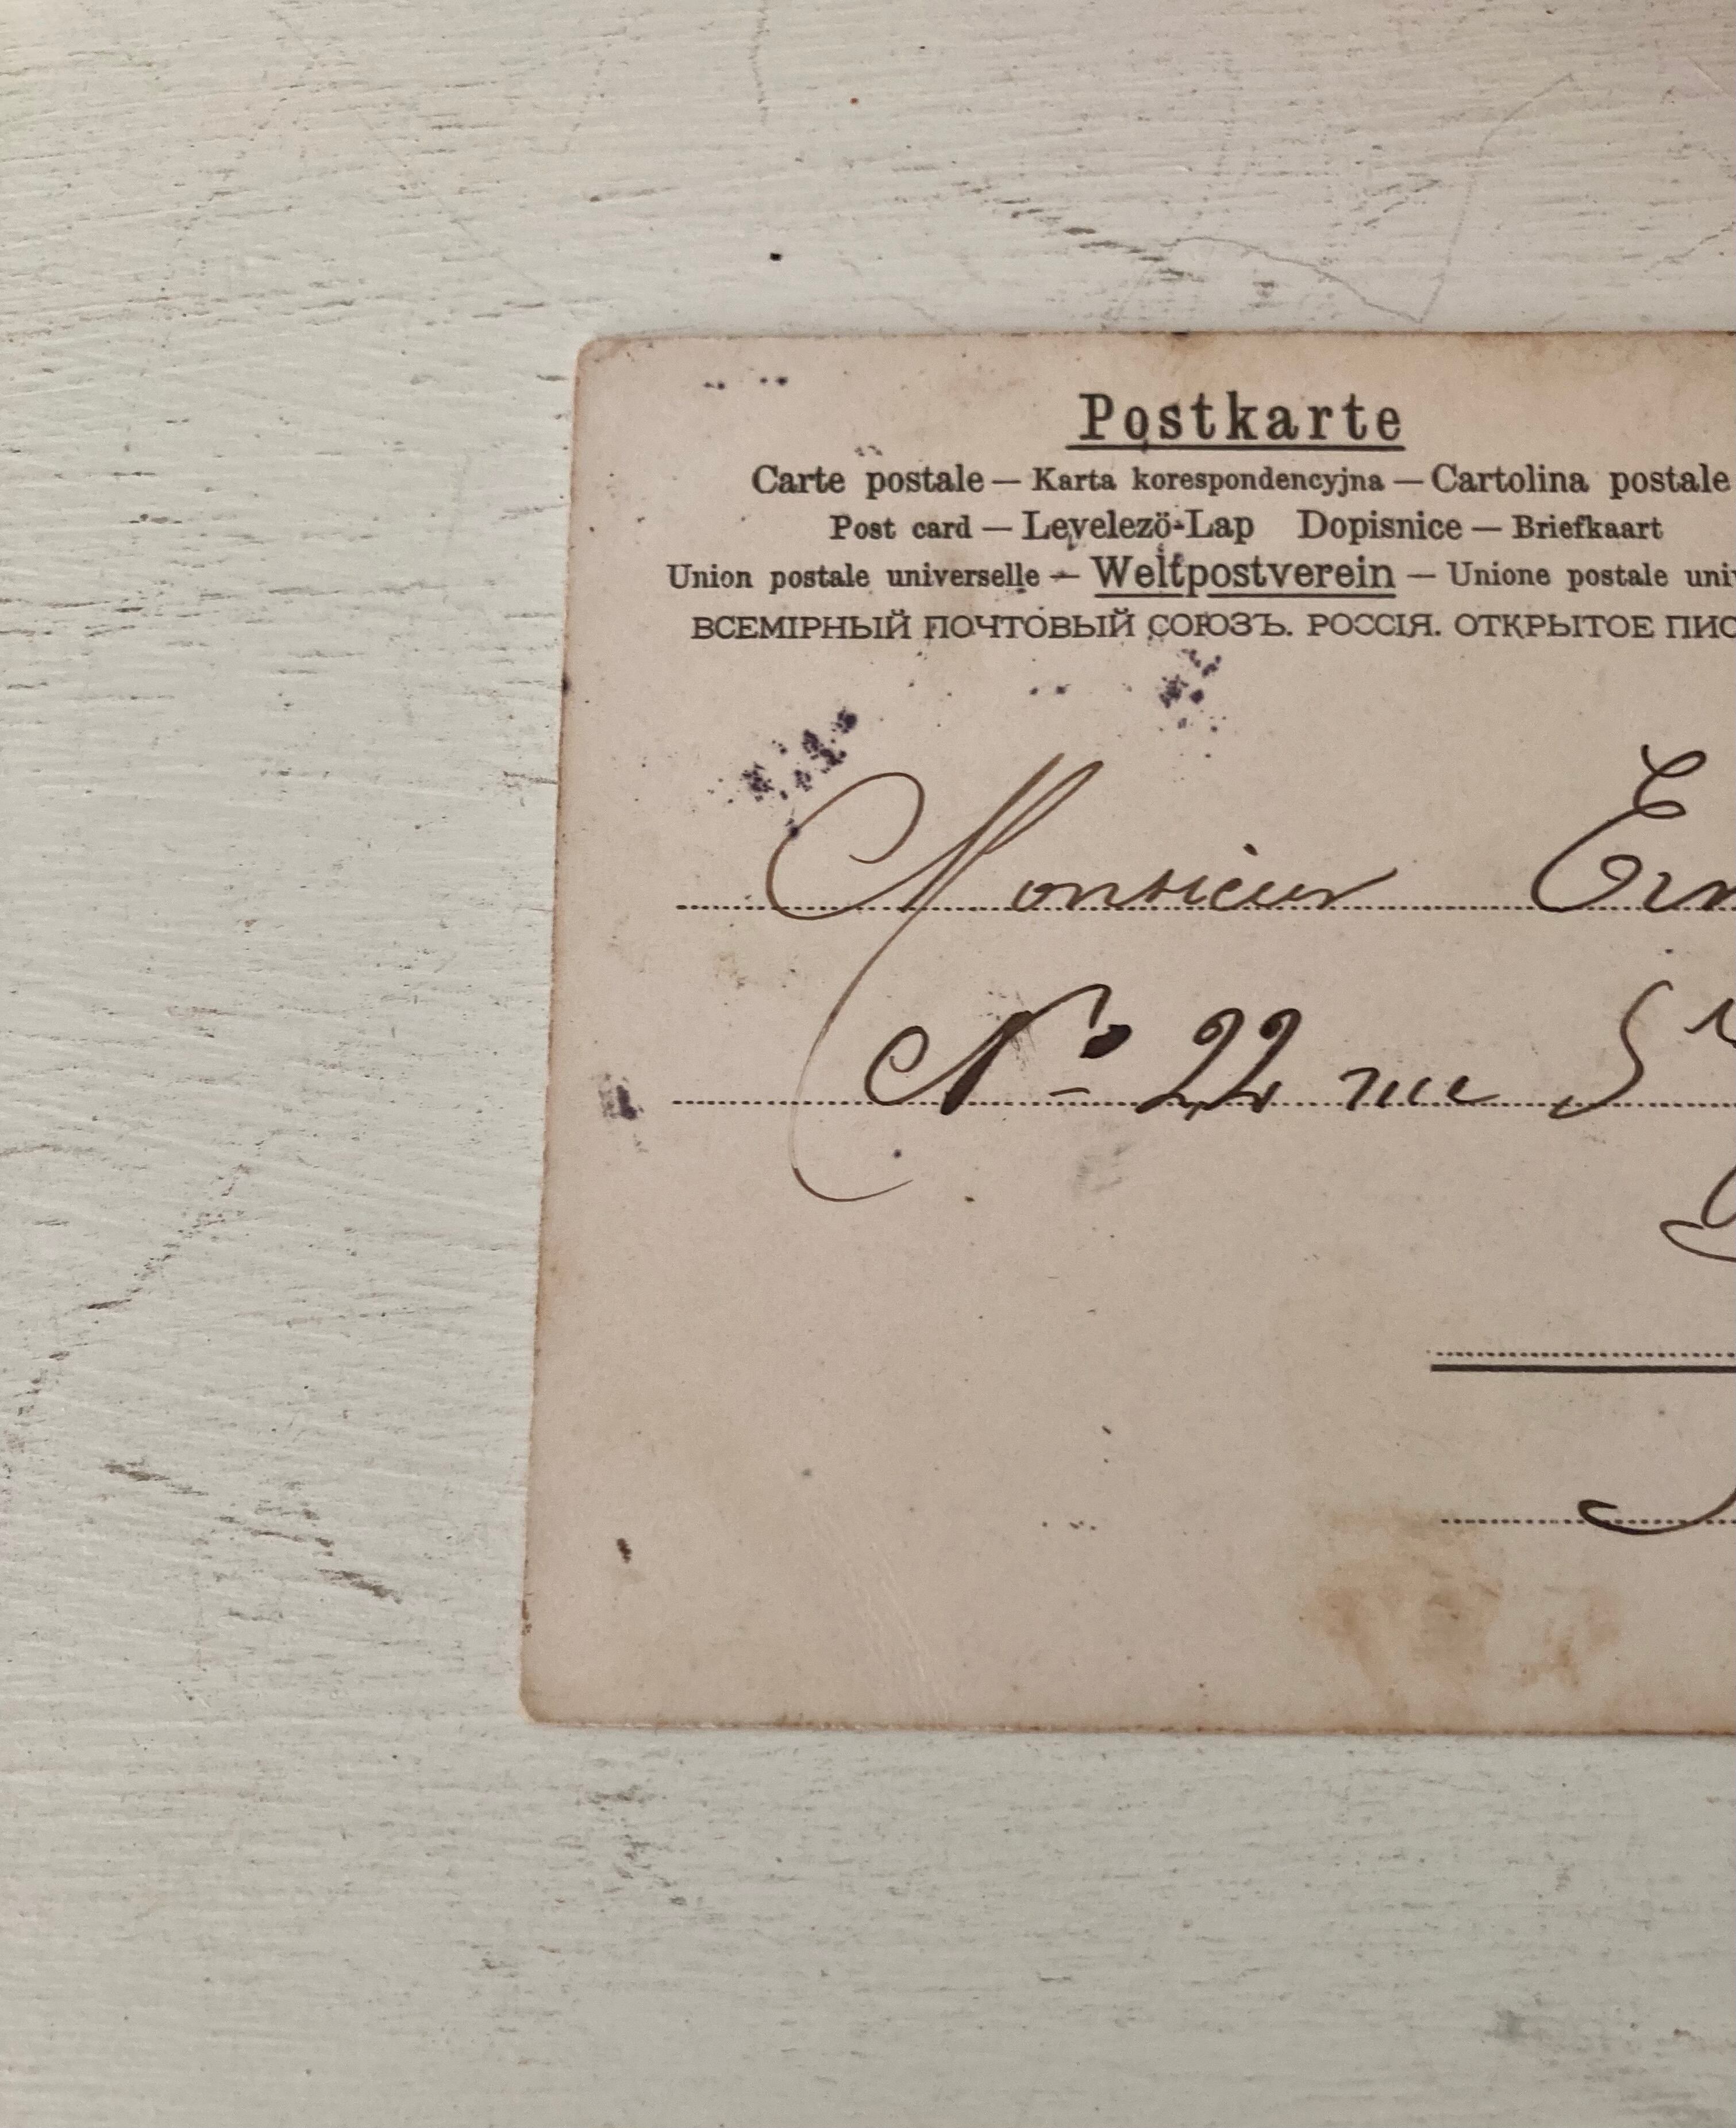 Postkarte
Carte postale — Karta korespondencyjna — Cartolina postale
Post card — Levelezö-Lap Dopisnice — Briefkaart
Union postale universelle — Weltpostverein — Unione postale univ
ВСЕМІРНЫЙ ПОЧТОВЫЙ СОЮЗЪ. РОССІЯ. ОТКРЫТОЕ ПИС
Monsieur
No 22 rue